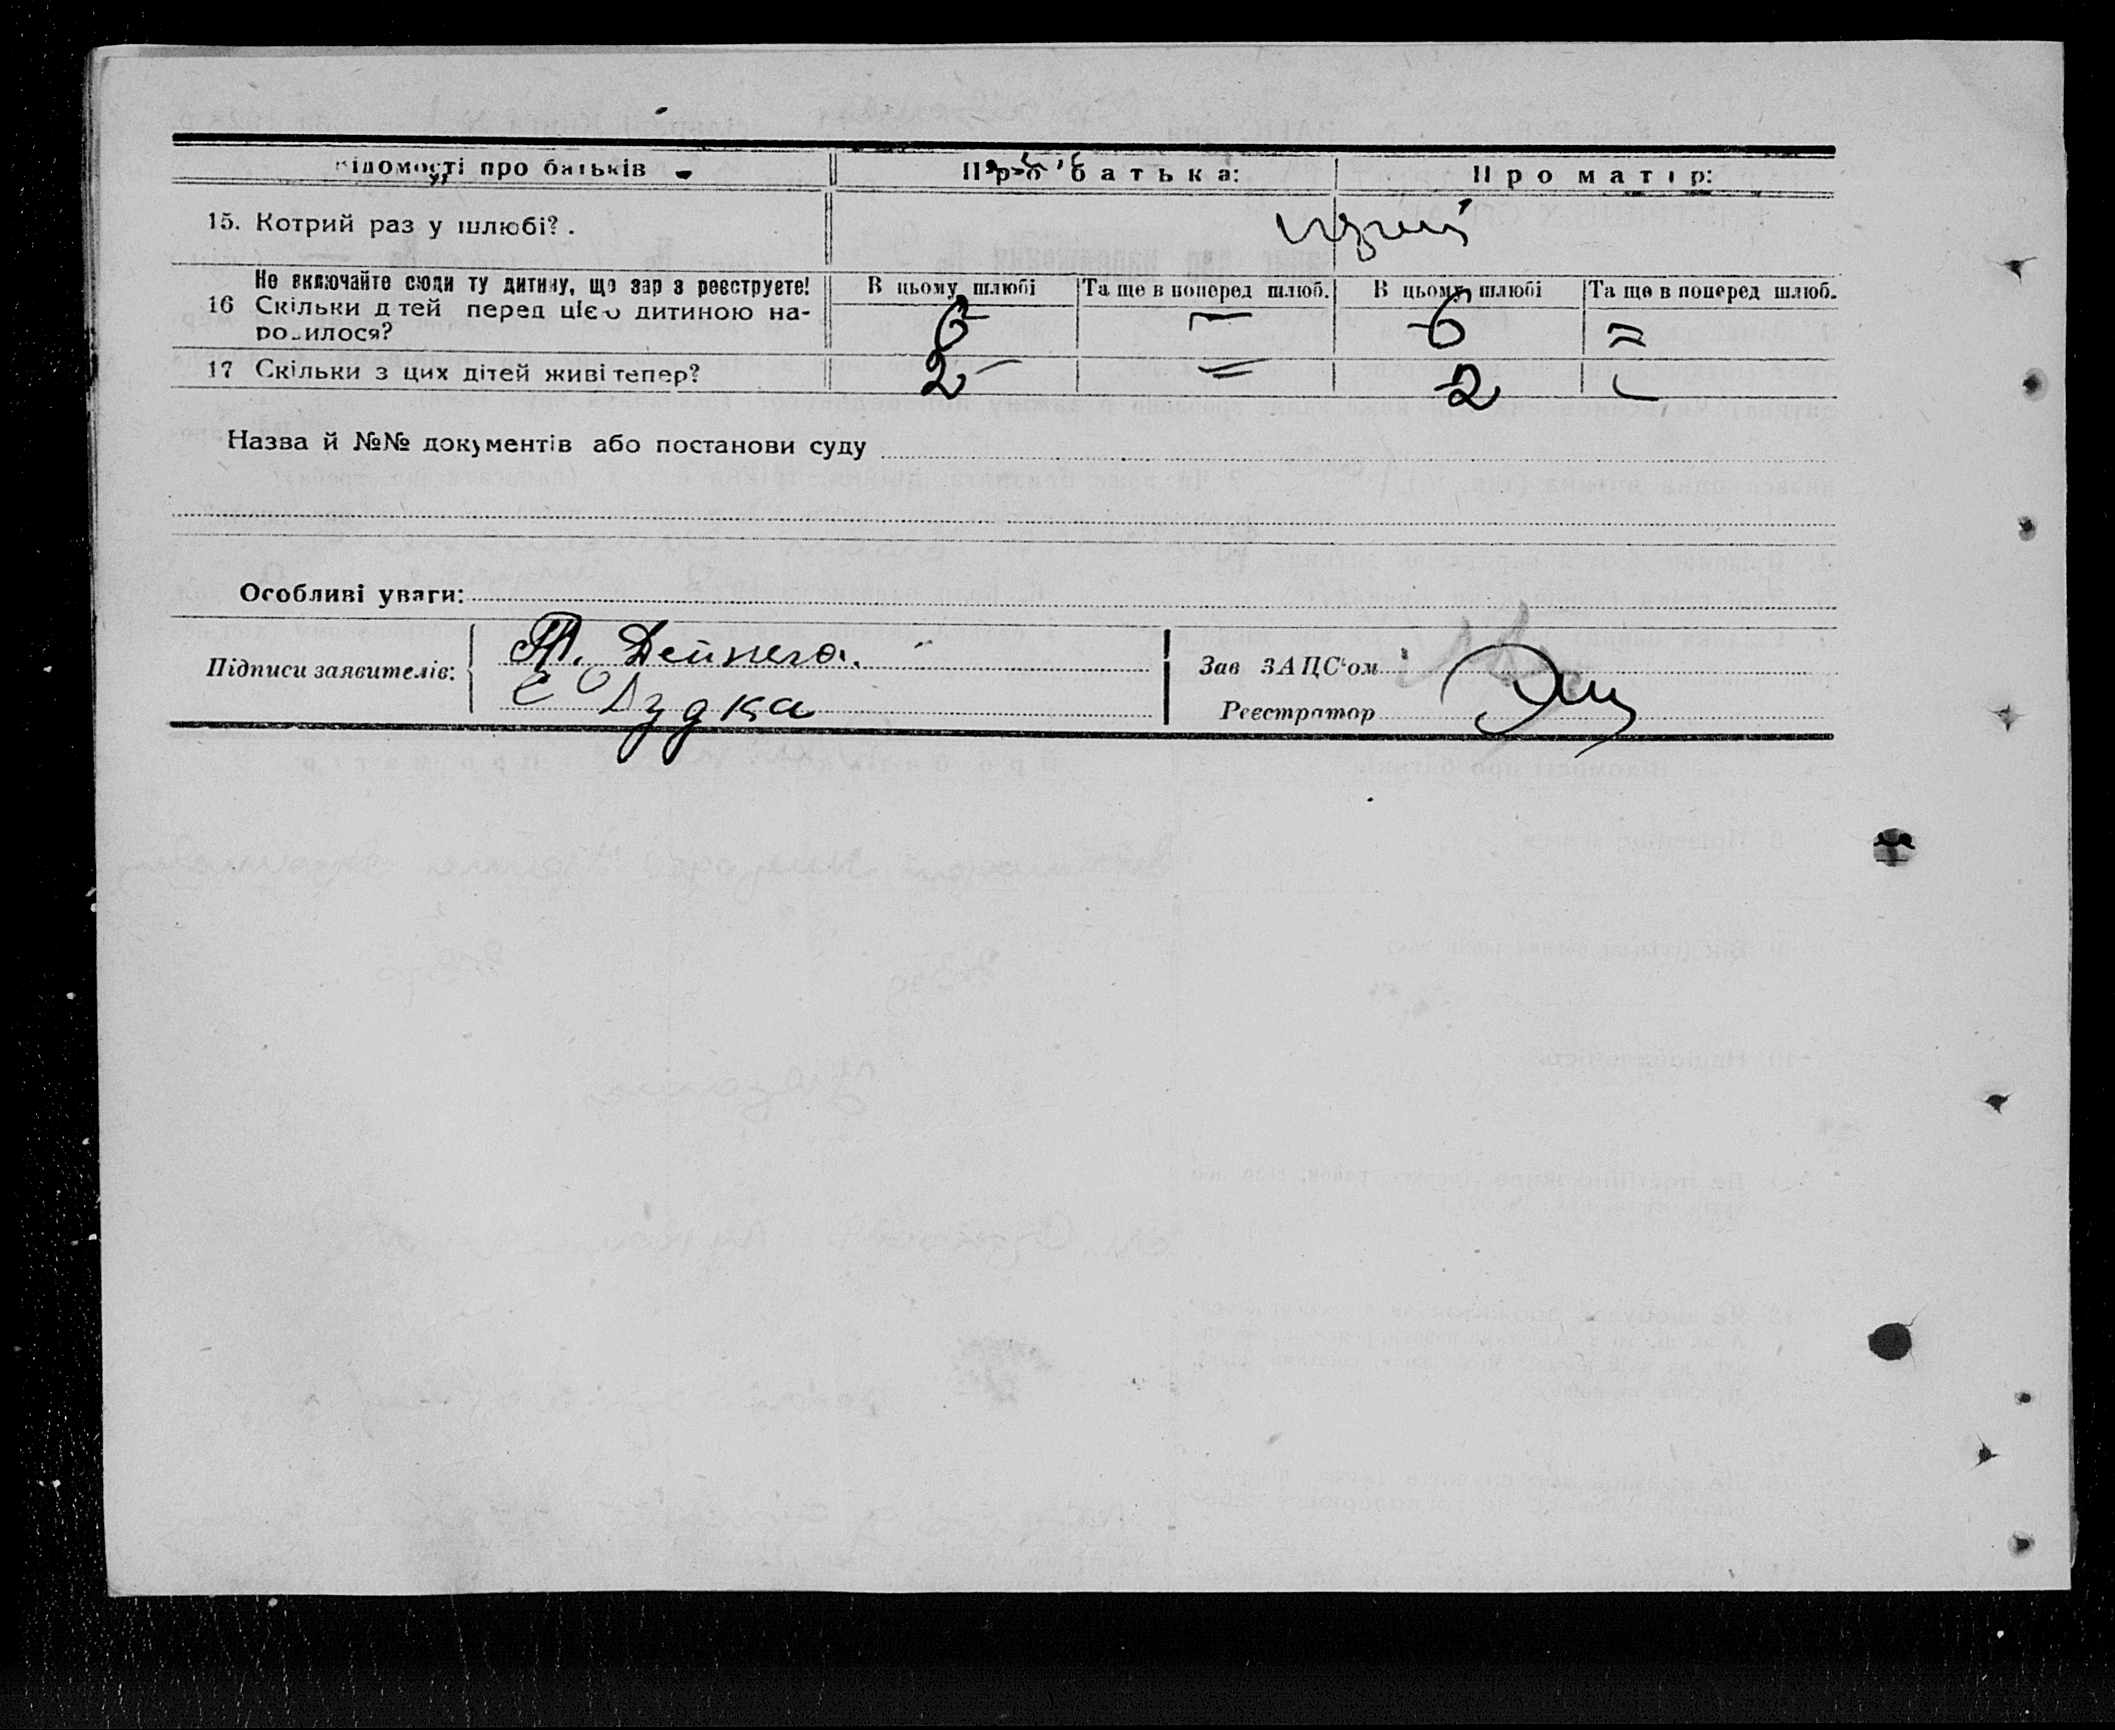 Відомості про батьків
Про батька:
Про матір:
15. Котрий раз у шлюбі?.
Не включайте сюди ту дитину, що зараз реєструєте!
В цьому шлюбі
Та ще в поперед шлюб.
В цьому шлюбі
Та ще в поперед шлюб.
16 Скільки дітей перед цією дитиною на-
родилося?
6
6
17 Скільки з цих дітей живі тепер?
2
2
Назва й №№ документів або постанови суду
Особливі уваги:
Підписи заявителів:
Дейнега.
Дудка
Зав ЗАЦС'ом
Реєстратор